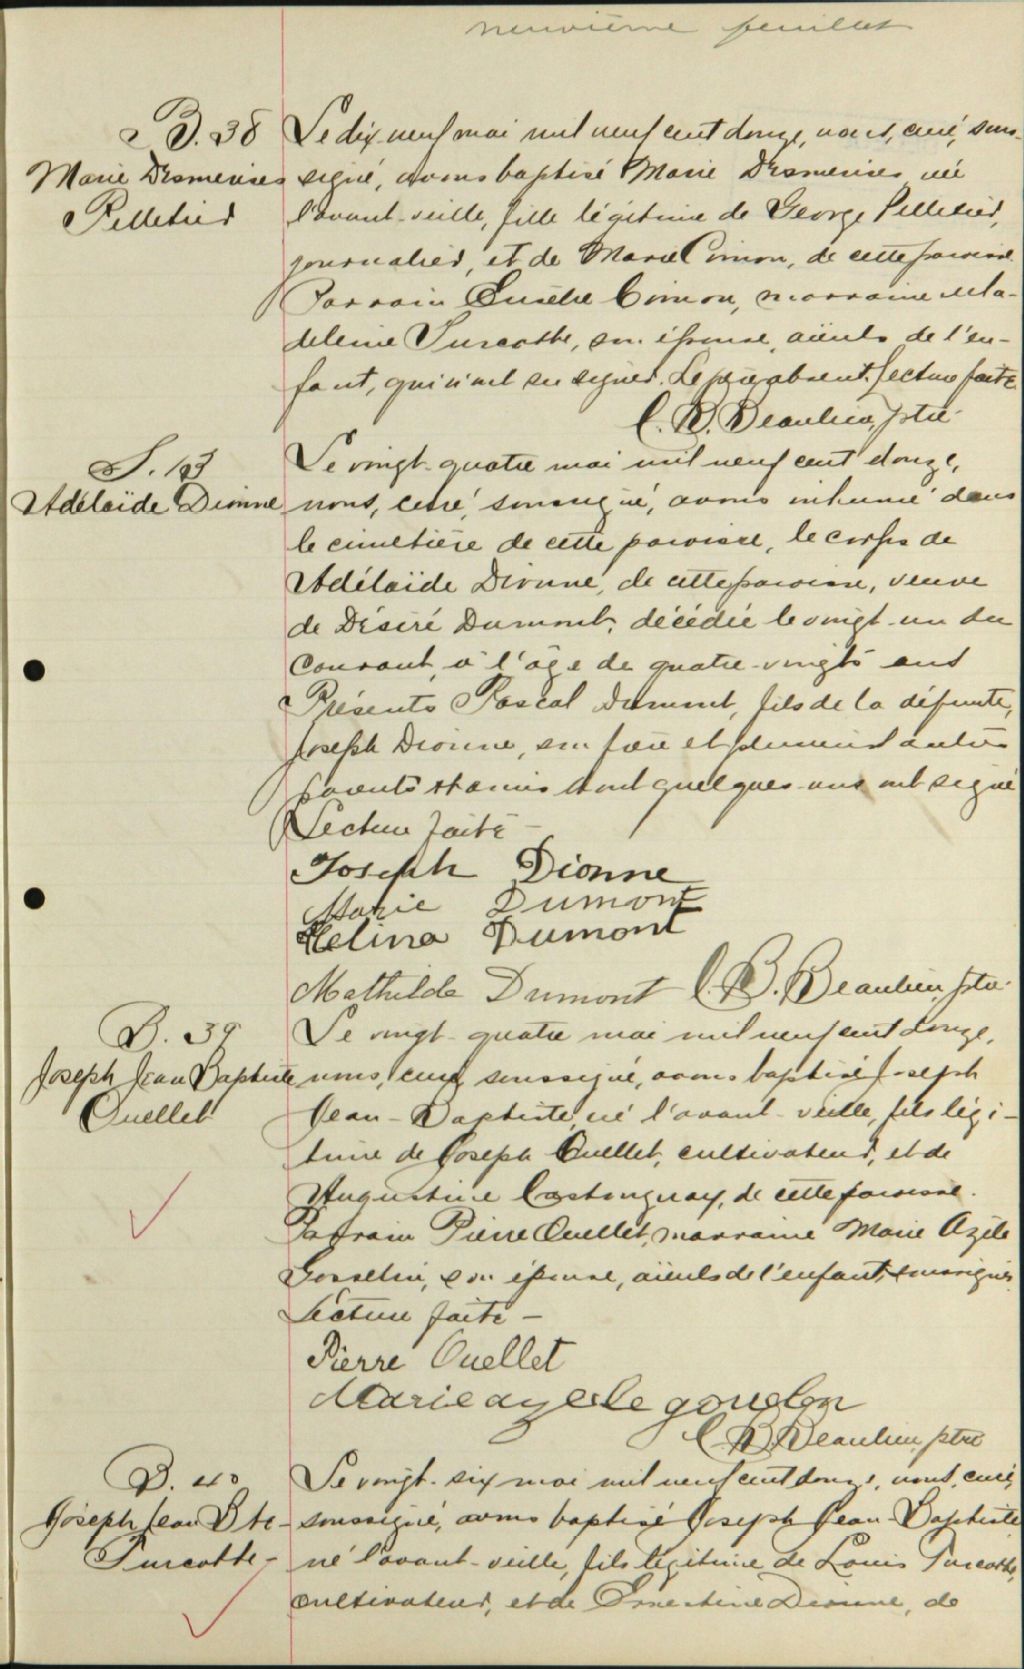 neuvième feuillet
B. 38
Marie Desmerises
Pelletier
Le dix-neuf mai mil neuf cent douze, nous, curé, sous-
signé, avons baptisé Marie Desmerises, née
l'avant-veille, fille légitime de George Pelletier,
journalier, et de Marie Cimon, de cette paroisse.
Parrain Eusèbe Cimon, marraine Ma-
deleine Turcotte, son épouse, aïeuls de l'en-
fant, qui n'ont su signer. Le père absent. Lecture faite
C. B. Beaulieu, ptre
S. 13
Adélaïde Dionne
Le vingt-quatre mai mil neuf cent douze,
nous, curé soussigné, avons inhumé dans
le cimetière de cette paroisse, le corps de
Adélaïde Dionne, de cette paroisse, veuve
de Désiré Dumont, décédée le vingt-un du
courant, à l'âge de quatre-vingts ans
Présents Pascal Dumont, fils de la défunte,
Joseph Dionne, son frère et plusieurs autres
parents et amis dont quelques-uns ont signé
Lecture faite -
Joseph Dionne
Marie Dumont
Helina Dumont
Mathilde Dumont C. B. Beaulieu, ptre
B. 39
Joseph Jean Baptiste
Ouellet
Le vingt-quatre mai mil neuf cent douze,
nous, curé, soussigné, avons baptisé Joseph
Jean-Baptiste, né l'avant-veille, fils légi-
time de Joseph Ouellet, cultivateur, et de
Augustine Castonguay, de cette paroisse.
Parrain Pierre Ouellet, marraine Marie Azèle
Gosselin, son épouse, aïeuls de l'enfant, soussignés.
Lecture faite -
Pierre Ouellet
Marie azele
C. B. Beaulieu, ptre
B. 40
Joseph Jean Bte
Turcotte -
Le vingt-six mai mil neuf cent douze, nous, curé,
soussigné, avons baptisé Joseph Jean-Baptiste
né l'avant-veille, fils légitime de Louis Turcotte,
cultivateur, et de Ernestine Dionne, de